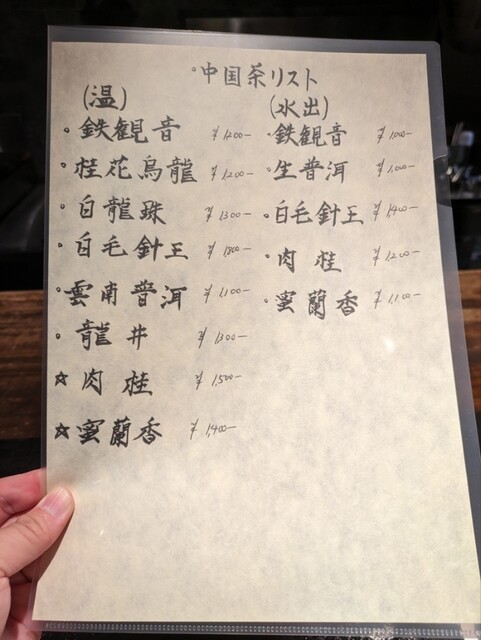 ・中国茶リスト
(温)
・鉄観音 ¥1200-
・桂花烏龍 ¥1,200-
・白龍珠 ¥1300-
・白毛針王 ¥1,800-
・雲南普洱 ¥1,100-
・龍井 ¥1300-
☆肉桂 ¥1,500-
☆蜜蘭香 ¥1,400-
(水出)
・鉄観音 ¥1,000-
・生普洱 ¥1,000-
・白毛針王 ¥1,400-
・肉桂 ¥1200-
・蜜蘭香 ¥1,100-